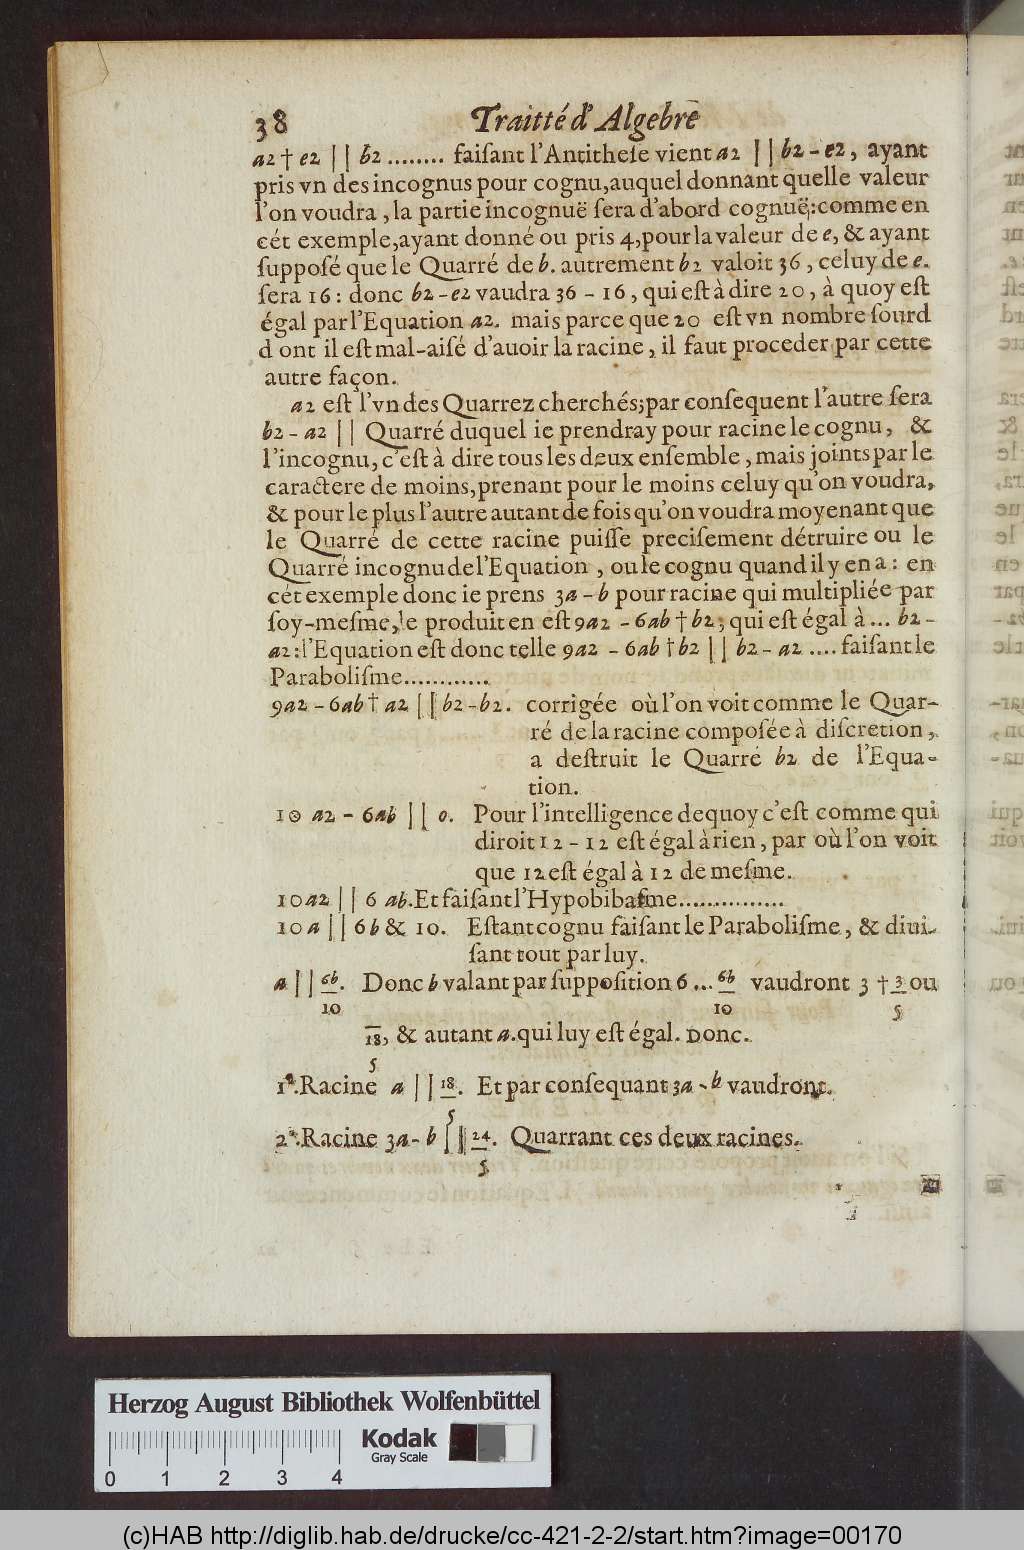 38 Traitté d'Algebre
a2 † e2 || b2 ........ faisant l'Antithese vient a2 || b2 - e2, ayant
pris vn des incognus pour cognu, auquel donnant quelle valeur
l'on voudra, la partie incognuë sera d'abord cognuë: comme en
cét exemple, ayant donné ou pris 4, pour la valeur de e, & ayant
supposé que le Quarré de b. autrement b2 valoit 36, celuy de e.
sera 16: donc b2 - e2 vaudra 36 - 16, qui est à dire 20, à quoy est
égal par l'Equation a2. mais parce que 20 est vn nombre sourd
dont il est mal-aisé d'auoir la racine, il faut proceder par cette
autre façon.
a2 est l'vn des Quarrez cherchés; par consequent l'autre sera
b2 - a2 || Quarré duquel ie prendray pour racine le cognu, &
l'incognu, c'est à dire tous les deux ensemble, mais joints par le
caractere de moins, prenant pour le moins celuy qu'on voudra,
& pour le plus l'autre autant de fois qu'on voudra moyenant que
le Quarré de cette racine puisse precisement détruire ou le
Quarré incognu de l'Equation, ou le cognu quand il y en a: en
cét exemple donc ie prens 3a - b pour racine qui multipliée par
soy-mesme, le produit en est 9a2 - 6ab † b2; qui est égal à ... b2 -
a2: l'Equation est donc telle 9a2 - 6ab † b2 || b2 - a2 .... faisant le
Parabolisme............
9a2 - 6ab † a2 || b2 - b2. corrigée où l'on voit comme le Quar-
ré de la racine composée à discretion,
a destruit le Quarré b2 de l'Equa-
tion.
10 a2 - 6ab || 0. Pour l'intelligence dequoy c'est comme qui
diroit 12 - 12 est égal à rien, par où l'on voit
que 12 est égal à 12 de mesme.
10a2 || 6 ab. Et faisant l'Hypobibasme...............
10a || 6b & 10. Estant cognu faisant le Parabolisme, & diui-
sant tout par luy.
a || 6b/10. Donc b valant par supposition 6 ... 6b/10 vaudront 3 † 3/5 ou
18/5, & autant a. qui luy est égal. Donc.
1e. Racine a || 18/5. Et par consequant 3a - b vaudront.
2e. Racine 3a - b || 24/5. Quarrant ces deux racines.
Herzog August Bibliothek Wolfenbüttel
Kodak
Gray Scale
0 1 2 3 4
(c)HAB http://diglib.hab.de/drucke/cc-421-2-2/start.htm?image=00170